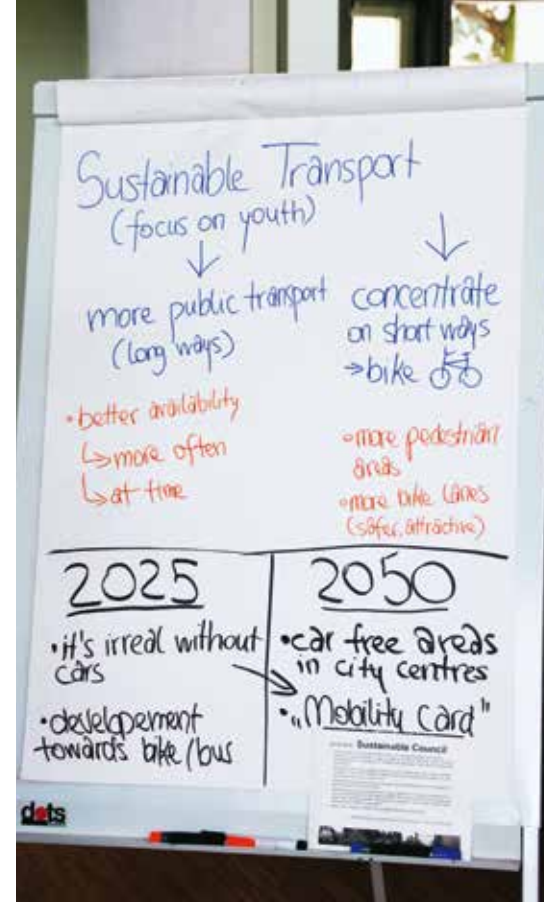 Sustainable Transport
(focus on youth)
more public transport
(long ways)
• better availability
↳ more often
↳ at time
concentrate
on short ways
→ bike
• more pedestrian
areas
• more bike lanes
(safer, attractive)
2025
• it's irreal without
cars
• developement
towards bike/bus
2050
• car free areas
in city centres
• „Mobility Card"
Sustainable Council
dots